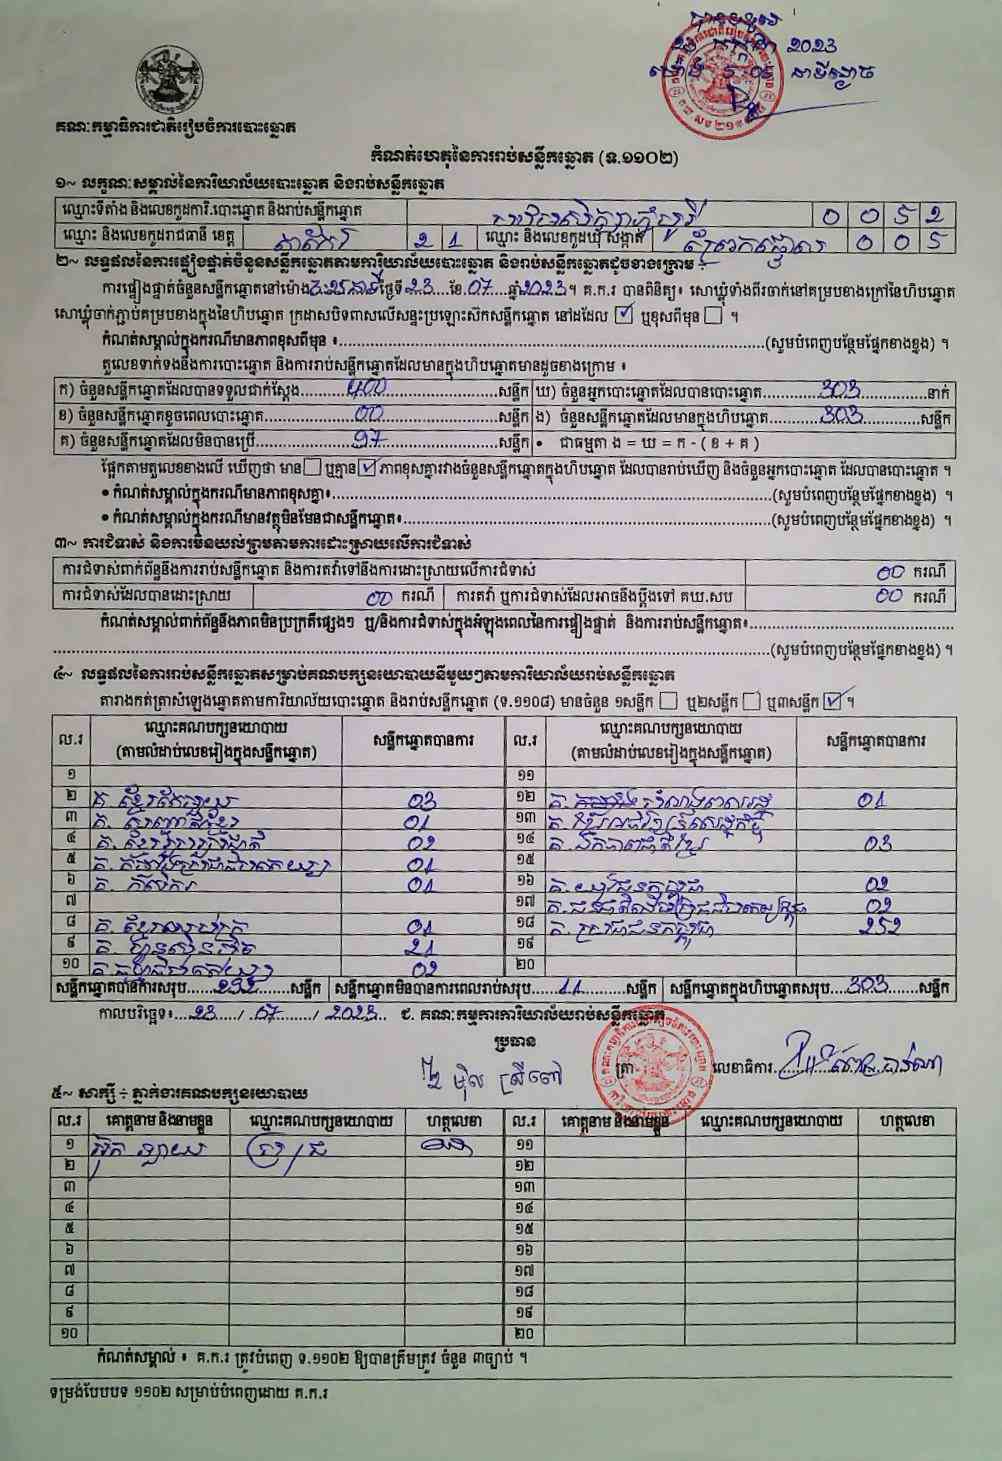 2023
គណៈកម្មាធិការជាតិរៀបចំការបោះឆ្នោត
កំណត់ហេតុនៃការរាប់សន្លឹកឆ្នោត (ទ.១១០២)
១~ លក្ខណៈសម្គាល់នៃការិយាល័យបោះឆ្នោត និងរាប់សន្លឹកឆ្នោត
ឈ្មោះទីតាំង និងលេខកូដការិ.បោះឆ្នោត និងរាប់សន្លឹកឆ្នោត 0 0 5 2
ឈ្មោះ និងលេខកូដរាជធានី ខេត្ត តាកែវ 2 1 ឈ្មោះ និងលេខកូដឃុំ សង្កាត់ 0 0 5
២~ លទ្ធផលនៃការផ្ទៀងផ្ទាត់ចំនួនសន្លឹកឆ្នោតតាមការិយាល័យបោះឆ្នោត និងរាប់សន្លឹកឆ្នោតដូចខាងក្រោម ÷
ការផ្ទៀងផ្ទាត់ចំនួនសន្លឹកឆ្នោតនៅម៉ោង ថ្ងៃទី 23 ខែ 07 ឆ្នាំ 2023។ គ.ក.រ បានពិនិត្យ៖ សោឃ្លុំទាំងពីរចាក់នៅគម្របខាងក្រៅនៃហិបឆ្នោត
សោឃ្លុំចាក់ភ្ជាប់គម្របខាងក្នុងនៃហិបឆ្នោត ក្រដាសបិទពាសលើសន្ទះប្រឡោះសិកសន្លឹកឆ្នោត នៅដដែល ☑ ឬខុសពីមុន ☐ ។
កំណត់សម្គាល់ក្នុងករណីមានភាពខុសពីមុន ៖ (សូមបំពេញបន្ថែមផ្នែកខាងខ្នង) ។
តួលេខទាក់ទងនឹងការបោះឆ្នោត និងការរាប់សន្លឹកឆ្នោតដែលមានក្នុងហិបឆ្នោតមានដូចខាងក្រោម ៖
ក) ចំនួនសន្លឹកឆ្នោតដែលបានទទួលជាក់ស្តែង 400 សន្លឹក ឃ) ចំនួនអ្នកបោះឆ្នោតដែលបានបោះឆ្នោត 303 នាក់
ខ) ចំនួនសន្លឹកឆ្នោតខូចពេលបោះឆ្នោត 00 សន្លឹក ង) ចំនួនសន្លឹកឆ្នោតដែលមានក្នុងហិបឆ្នោត 303 សន្លឹក
គ) ចំនួនសន្លឹកឆ្នោតដែលមិនបានប្រើ 97 សន្លឹក • ជាធម្មតា ង = ឃ = ក - ( ខ + គ )
ផ្អែកតាមតួលេខខាងលើ ឃើញថា មាន ☐ ឬគ្មាន ☑ ភាពខុសគ្នារវាងចំនួនសន្លឹកឆ្នោតក្នុងហិបឆ្នោត ដែលបានរាប់ឃើញ និងចំនួនអ្នកបោះឆ្នោត ដែលបានបោះឆ្នោត ។
• កំណត់សម្គាល់ក្នុងករណីមានភាពខុសគ្នា៖ (សូមបំពេញបន្ថែមផ្នែកខាងខ្នង) ។
• កំណត់សម្គាល់ក្នុងករណីមានវត្ថុមិនមែនជាសន្លឹកឆ្នោត៖ (សូមបំពេញបន្ថែមផ្នែកខាងខ្នង) ។
៣~ ការជំទាស់ និងការមិនយល់ព្រមតាមការដោះស្រាយលើការជំទាស់
ការជំទាស់ពាក់ព័ន្ធនឹងការរាប់សន្លឹកឆ្នោត និងការតវ៉ាទៅនឹងការដោះស្រាយលើការជំទាស់ 00 ករណី
ការជំទាស់ដែលបានដោះស្រាយ 00 ករណី ការតវ៉ា ឬការជំទាស់ដែលអាចនឹងប្តឹងទៅ គឃ.សប 00 ករណី
កំណត់សម្គាល់ពាក់ព័ន្ធនឹងភាពមិនប្រក្រតីផ្សេងៗ ឬ/និងការជំទាស់ក្នុងអំឡុងពេលនៃការផ្ទៀងផ្ទាត់ និងការរាប់សន្លឹកឆ្នោត៖
(សូមបំពេញបន្ថែមផ្នែកខាងខ្នង) ។
៤~ លទ្ធផលនៃការរាប់សន្លឹកឆ្នោតសម្រាប់គណបក្សនយោបាយនីមួយៗតាមការិយាល័យរាប់សន្លឹកឆ្នោត
តារាងកត់ត្រាសំឡេងឆ្នោតតាមការិយាល័យបោះឆ្នោត និងរាប់សន្លឹកឆ្នោត (ទ.១១០៨) មានចំនួន ១សន្លឹក ☐ ឬ២សន្លឹក ☐ ឬ៣សន្លឹក ☑ ។
ល.រ ឈ្មោះគណបក្សនយោបាយ (តាមលំដាប់លេខរៀងក្នុងសន្លឹកឆ្នោត) សន្លឹកឆ្នោតបានការ ល.រ ឈ្មោះគណបក្សនយោបាយ (តាមលំដាប់លេខរៀងក្នុងសន្លឹកឆ្នោត) សន្លឹកឆ្នោតបានការ
១ ១១
២ 03 ១២ 01
៣ 01 ១៣
៤ 02 ១៤ 03
៥ 01 ១៥
៦ គ. កសិករ 01 ១៦ 02
៧ ១៧ 02
៨ 01 ១៨ គ. ប្រជាជនកម្ពុជា 252
៩ 21 ១៩
១០ 02 ២០
សន្លឹកឆ្នោតបានការសរុប 292 សន្លឹក សន្លឹកឆ្នោតមិនបានការពេលរាប់សរុប 11 សន្លឹក សន្លឹកឆ្នោតក្នុងហិបឆ្នោតសរុប 303 សន្លឹក
កាលបរិច្ឆេទ៖ 23 / 07 / 2023 ជ. គណៈកម្មការការិយាល័យរាប់សន្លឹកឆ្នោត
ប្រធាន
ត្រា លេខាធិការ
៥~ សាក្សី ÷ ភ្នាក់ងារគណបក្សនយោបាយ
ល.រ គោត្តនាម និងនាមខ្លួន ឈ្មោះគណបក្សនយោបាយ ហត្ថលេខា ល.រ គោត្តនាម និងនាមខ្លួន ឈ្មោះគណបក្សនយោបាយ ហត្ថលេខា
១ ១១
២ ១២
៣ ១៣
៤ ១៤
៥ ១៥
៦ ១៦
៧ ១៧
៨ ១៨
៩ ១៩
១០ ២០
កំណត់សម្គាល់ ៖ គ.ក.រ ត្រូវបំពេញ ទ.១១០២ ឱ្យបានត្រឹមត្រូវ ចំនួន ៣ច្បាប់ ។
ទម្រង់បែបបទ ១១០២ សម្រាប់បំពេញដោយ គ.ក.រ